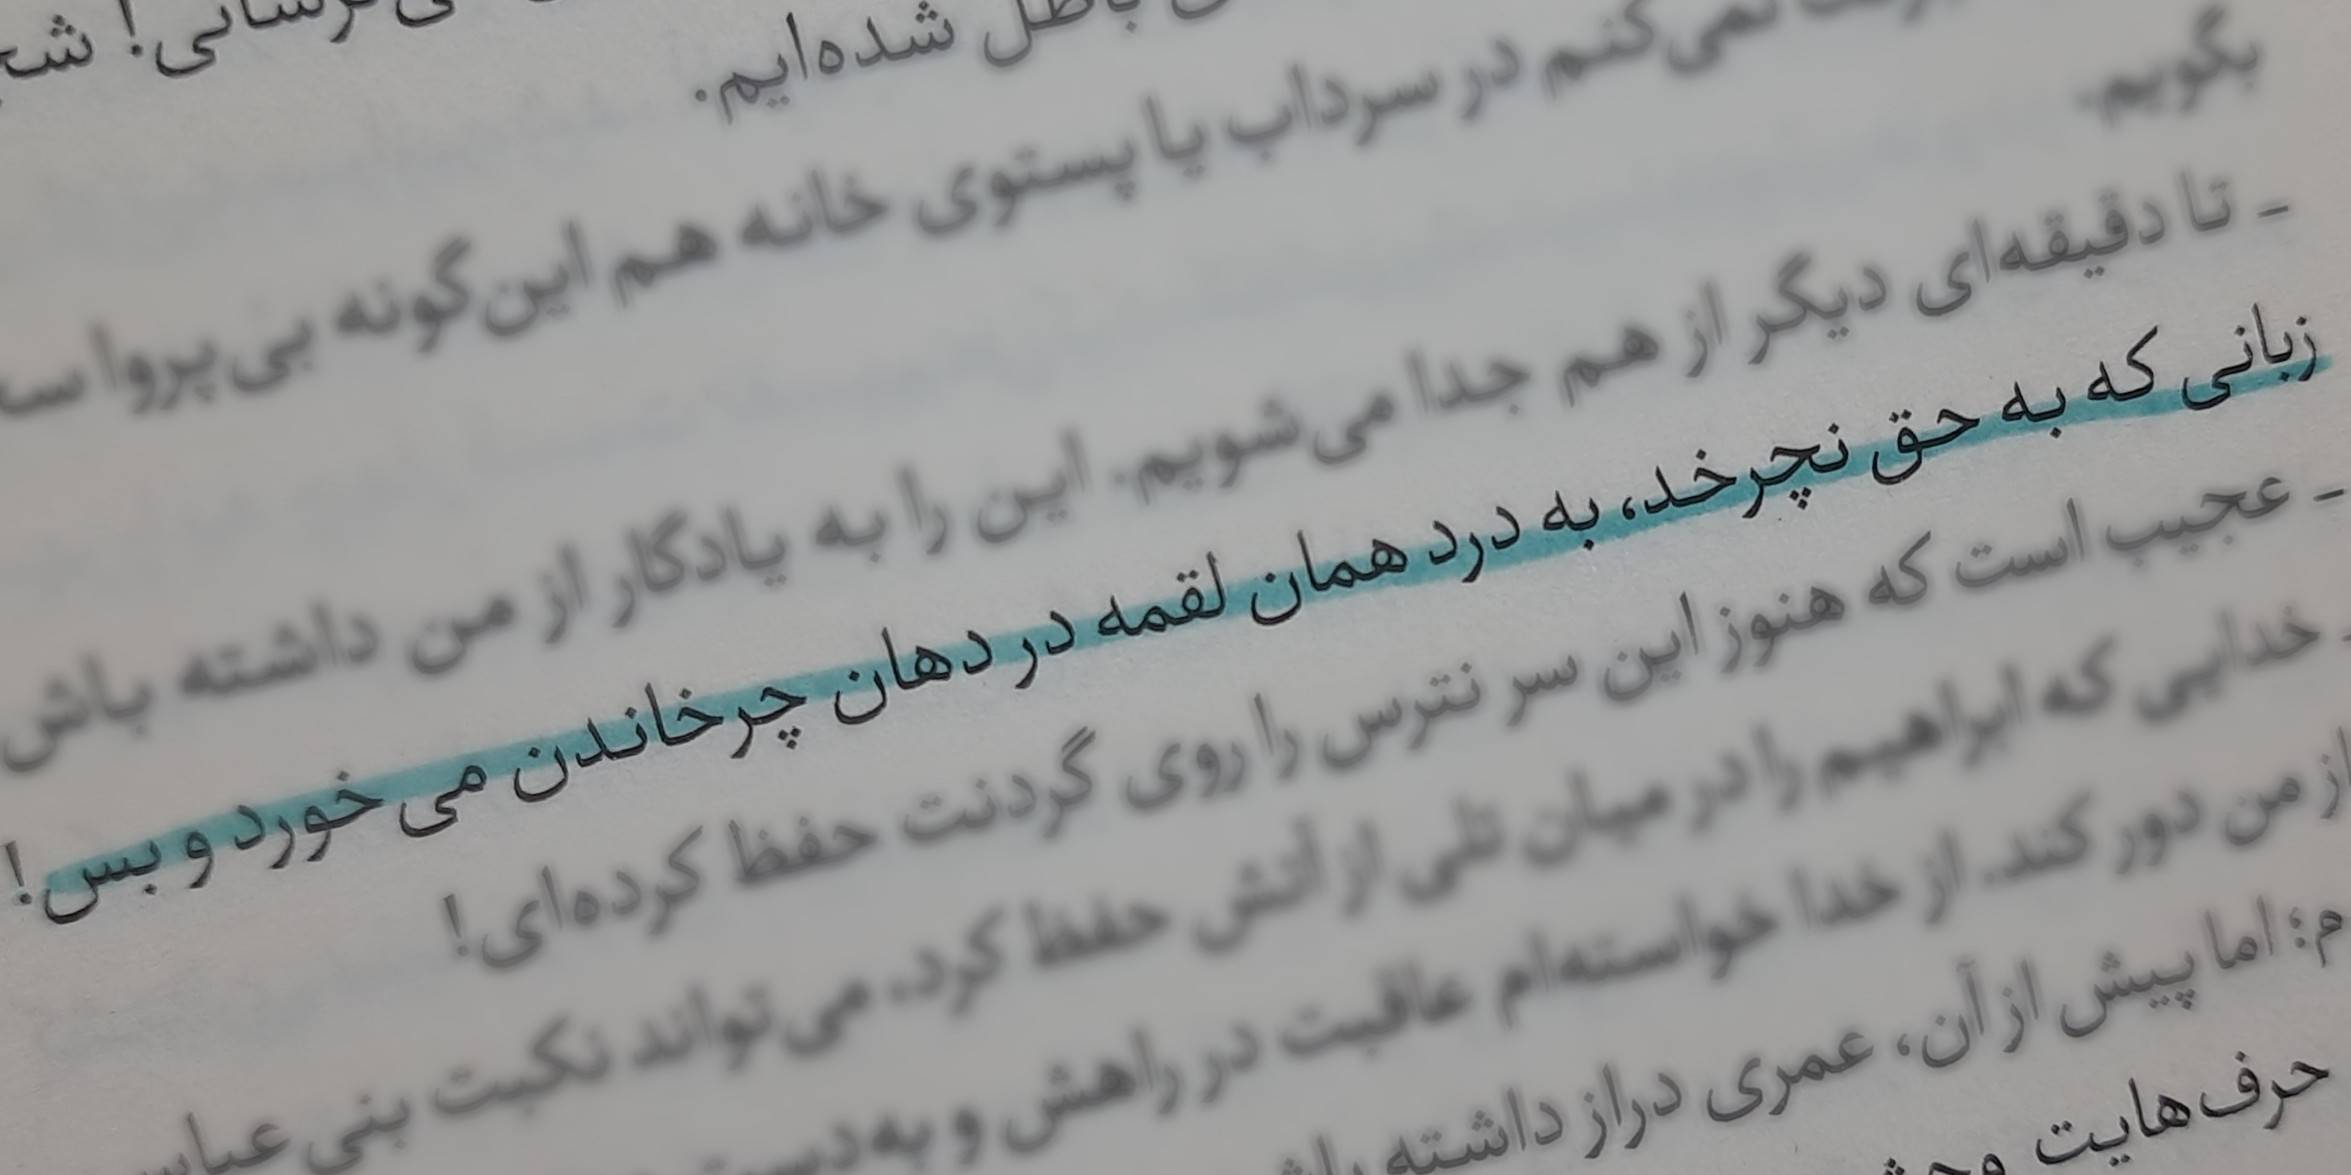 شده‌ایم.
نمی‌کنم در سرداب یا پستوی خانه هم این‌گونه بی‌پروا
بگویم.
ـ تا دقیقه‌ای دیگر از هم جدا می‌شویم. این را به یادگار از من داشته باش
زبانی که به حق نچرخد، به درد همان لقمه در دهان چرخاندن می خورد و بس!
ـ عجیب است که هنوز این سر نترس را روی گردنت حفظ کرده‌ای!
خدایی که ابراهیم را در میان تلی از آتش حفظ کرد، می‌تواند نکبت بنی
از من دور کند. از خدا خواسته‌ام عاقبت در راهش و به‌دست
اما پیش از آن، عمری دراز داشته
حرف‌هایت